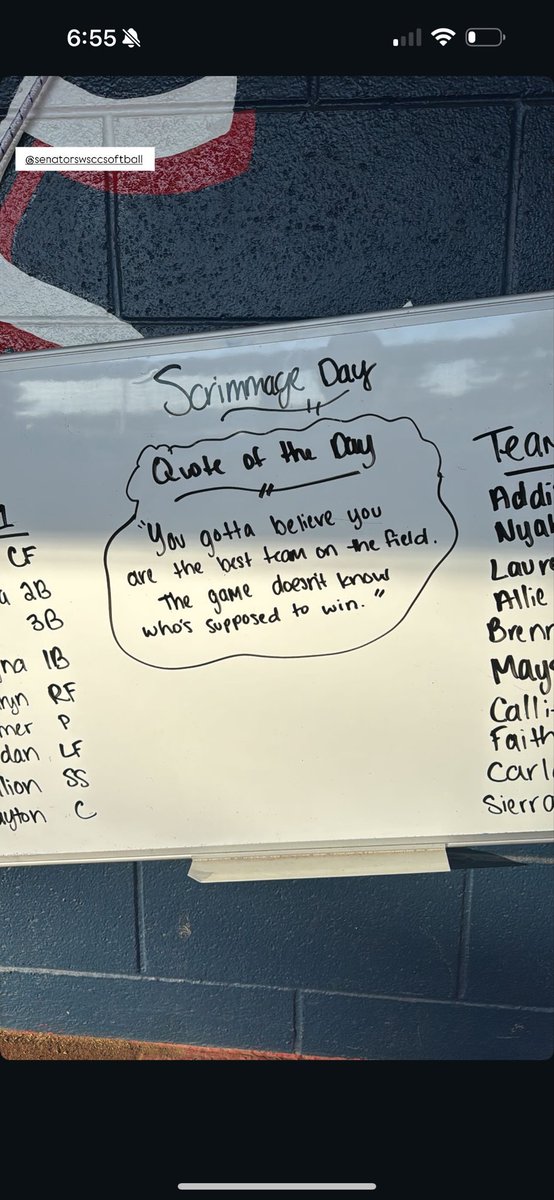 6:55
@senatorswsccsoftball
Scrimmage Day
Quote of the Day
"You gotta believe you
are the best team on the field.
The game doesn't know
who's supposed to win."
1
CF
2B
3B
1B
RF
P
LF
SS
C
Team
Addi
Nya
Laure
Allie
Brenn
May
Calli
Faith
Carl
Sierra